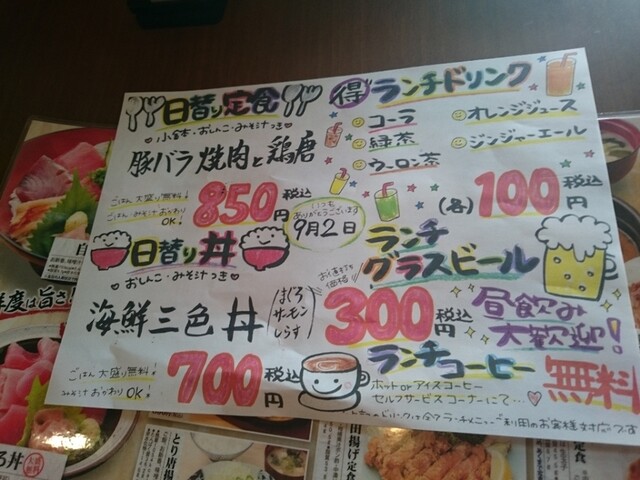 日替り定食
小鉢・おしんこ・みそ汁つき
豚バラ焼肉と鶏唐
ごはん大盛り無料!
ごはん・みそ汁おかわりOK!
850円 税込
いつもありがとうございます
9月2日
日替り丼
おしんこ・みそ汁つき
海鮮三色丼
まぐろ
サーモン
しらす
ごはん大盛り無料!
みそ汁おかわりOK!
700円 税込
得 ランチドリンク
コーラ
オレンジジュース
緑茶
ジンジャーエール
ウーロン茶
(各)100円 税込
ランチ
グラスビール
お値打ち価格
300円 税込
昼飲み
大歓迎!
ランチコーヒー
無料
ホット or アイスコーヒー
セルフサービスコーナーにて…
度は旨さ
ろ丼
とり唐揚
揚げ定食